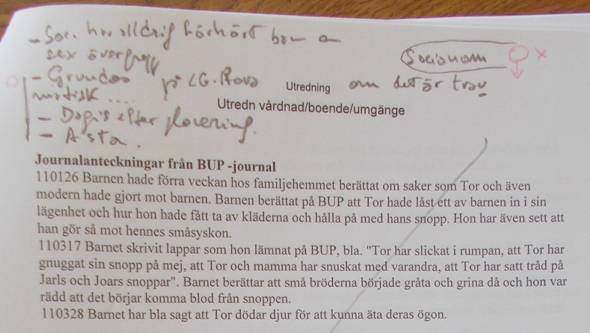 - Soc. har alldrig förhört barn om
sex övergrepp Socionom
- Grundas på LG. Utredning om det är
Utredn vårdnad/boende/umgänge
- Dagis efter placering.
- Asta.
Journalanteckningar från BUP -journal
110126 Barnen hade förra veckan hos familjehemmet berättat om saker som Tor och även
modern hade gjort mot barnen. Barnen berättat på BUP att Tor hade låst ett av barnen in i sin
lägenhet och hur hon hade fått ta av kläderna och hålla på med hans snopp. Hon har även sett att
han gör så mot hennes småsyskon.
110317 Barnet skrivit lappar som hon lämnat på BUP, bla. "Tor har slickat i rumpan, att Tor har
gnuggat sin snopp på mej, att Tor och mamma har snuskat med varandra, att Tor har satt tråd på
Jarls och Joars snoppar". Barnet berättar att små bröderna började gråta och grina då och hon var
rädd att det börjar komma blod från snoppen.
110328 Barnet har bla sagt att Tor dödar djur för att kunna äta deras ögon.